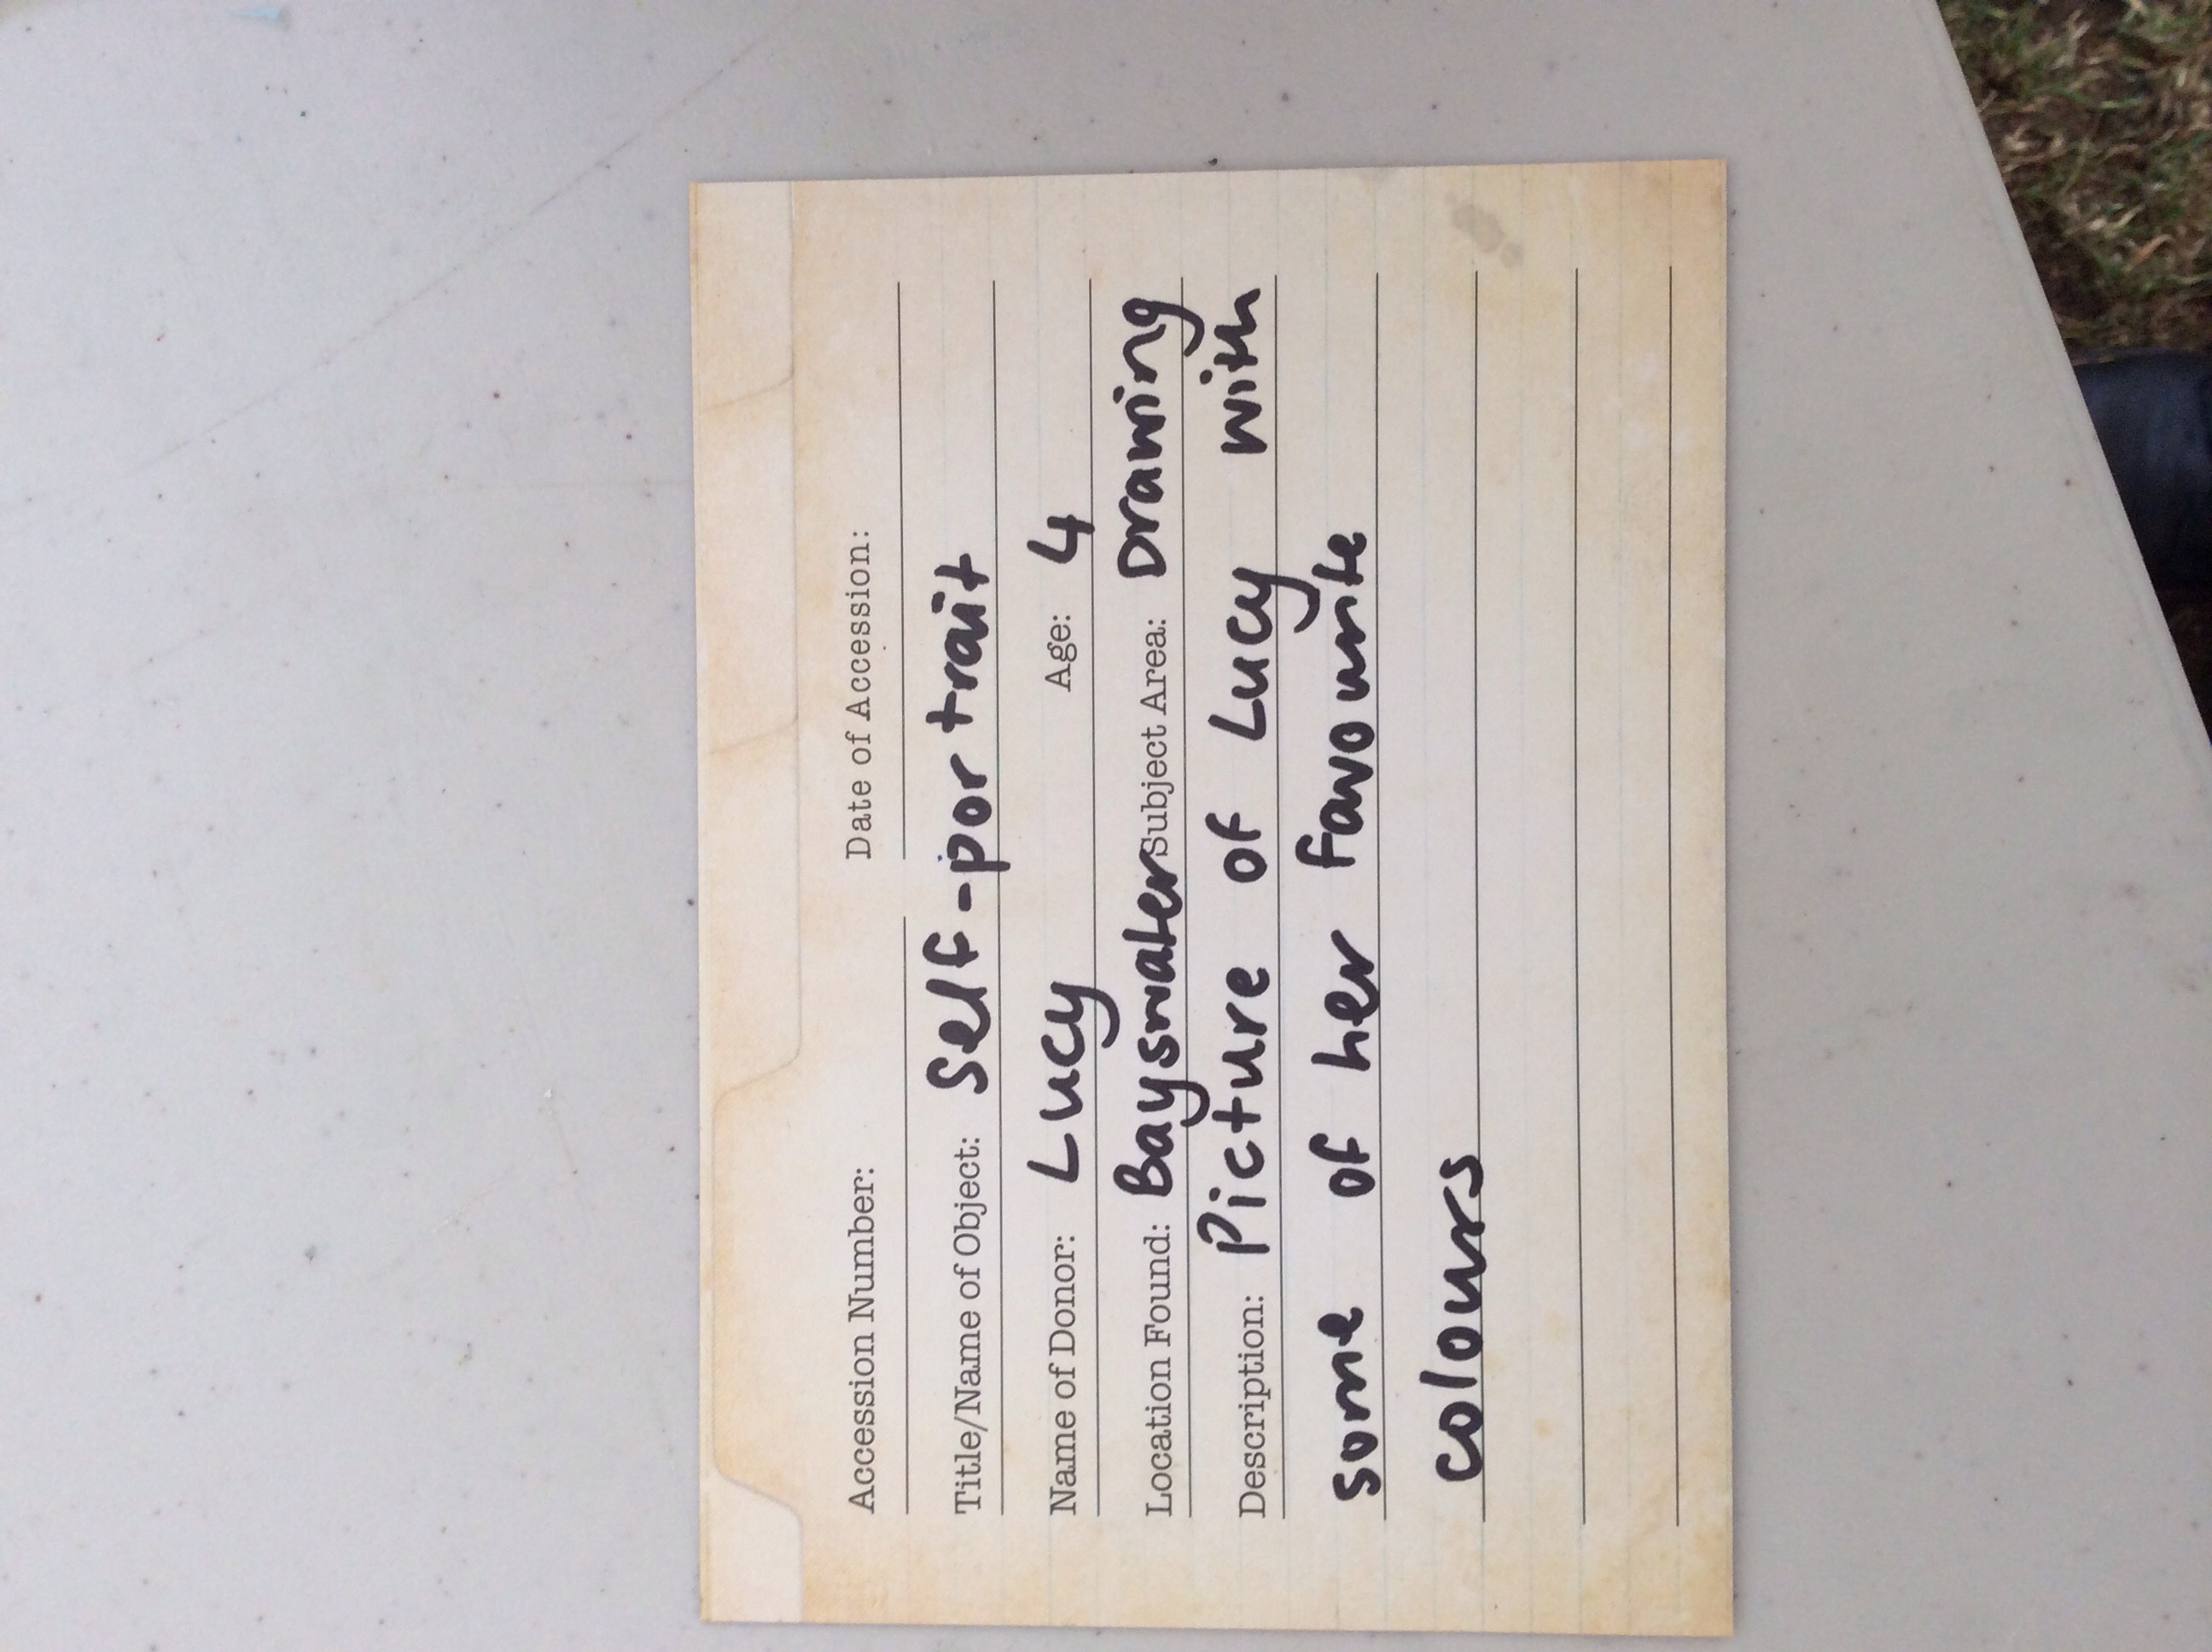 Accession Number: Date of Accession:
Title/Name of Object: Self-portrait
Name of Donor: Lucy Age: 4
Location Found: Bayswater Subject Area: Drawing
Description: Picture of Lucy with
some of her favourite
colours